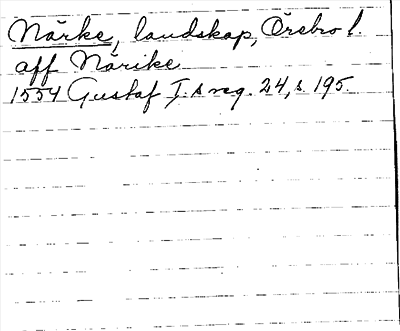 Närke, landskap, Örebro l.
aff Närike.
1554 Gustaf I:s reg. 24, s. 195.